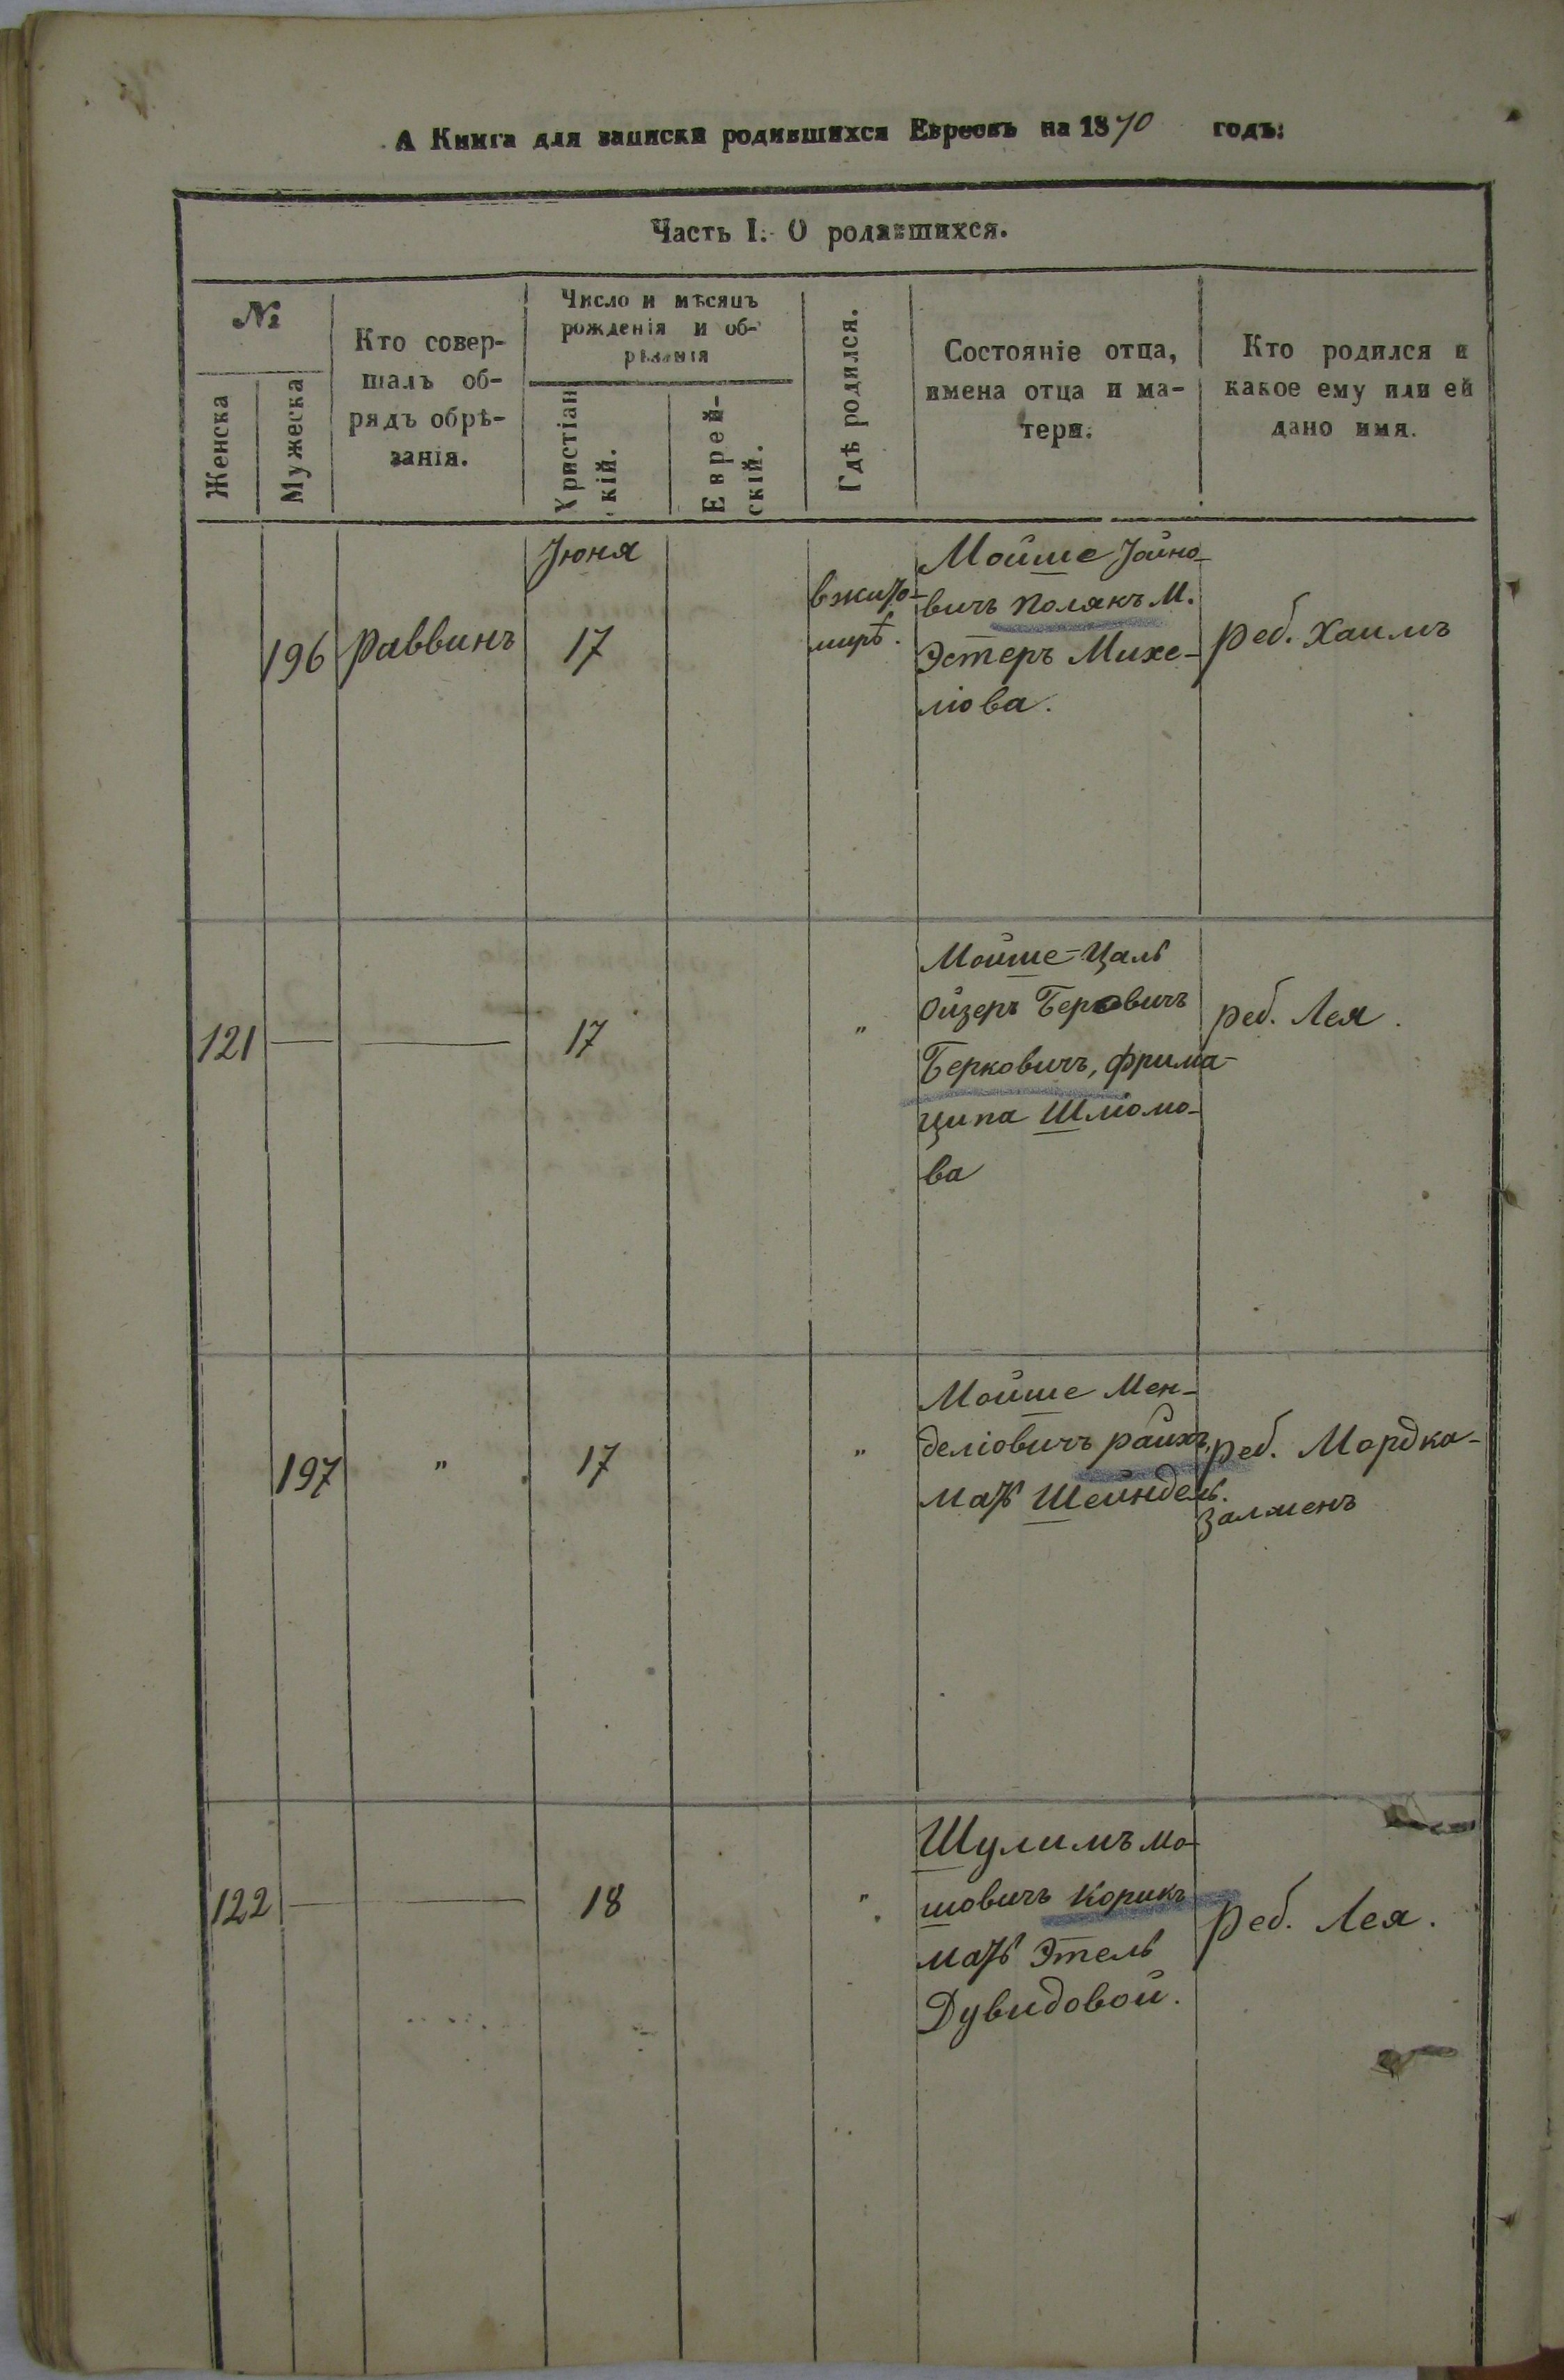 А Книга для записки родившихся Евреевъ на 1870 годъ:
Часть I. О родившихся.
№
Женска
Мужеска
Кто совер-
шалъ об-
рядъ обрѣ-
занія.
Число и мѣсяцъ
рожденія и об-
рѣзанія
Христіан
скій.
Еврей-
скій.
Гдѣ родился.
Состояніе отца,
имена отца и ма-
тери.
Кто родился и
какое ему или ей
дано имя.
196
Раввинъ
Іюня
17
в жито-
мирѣ.
Мойше Іойно-
вичъ Полякъ М.
Эстеръ Михе-
ліова.
реб. Хаимъ
121
—
—
17
"
Мойше-Цаль
Ойзеръ Беровичъ
Берковичъ, Фрима-
Ципа Шліомо-
ва
реб. Лея.
197
"
17
"
Мойше Мен-
деліовичъ Райхъ,
мать Шейндель.
реб. Мордка-
Залменъ
122
—
—
18
"
Шулимъ Мо-
шовичъ Корикъ
мать Этель
Дувидовой.
реб. Лея.